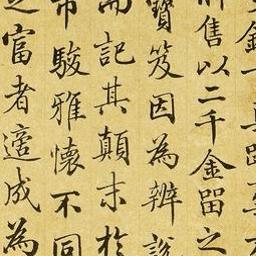 售以二千金留之
寶笈因為辨說
而記其顛末於
市駿雅懷不同
富者適成為